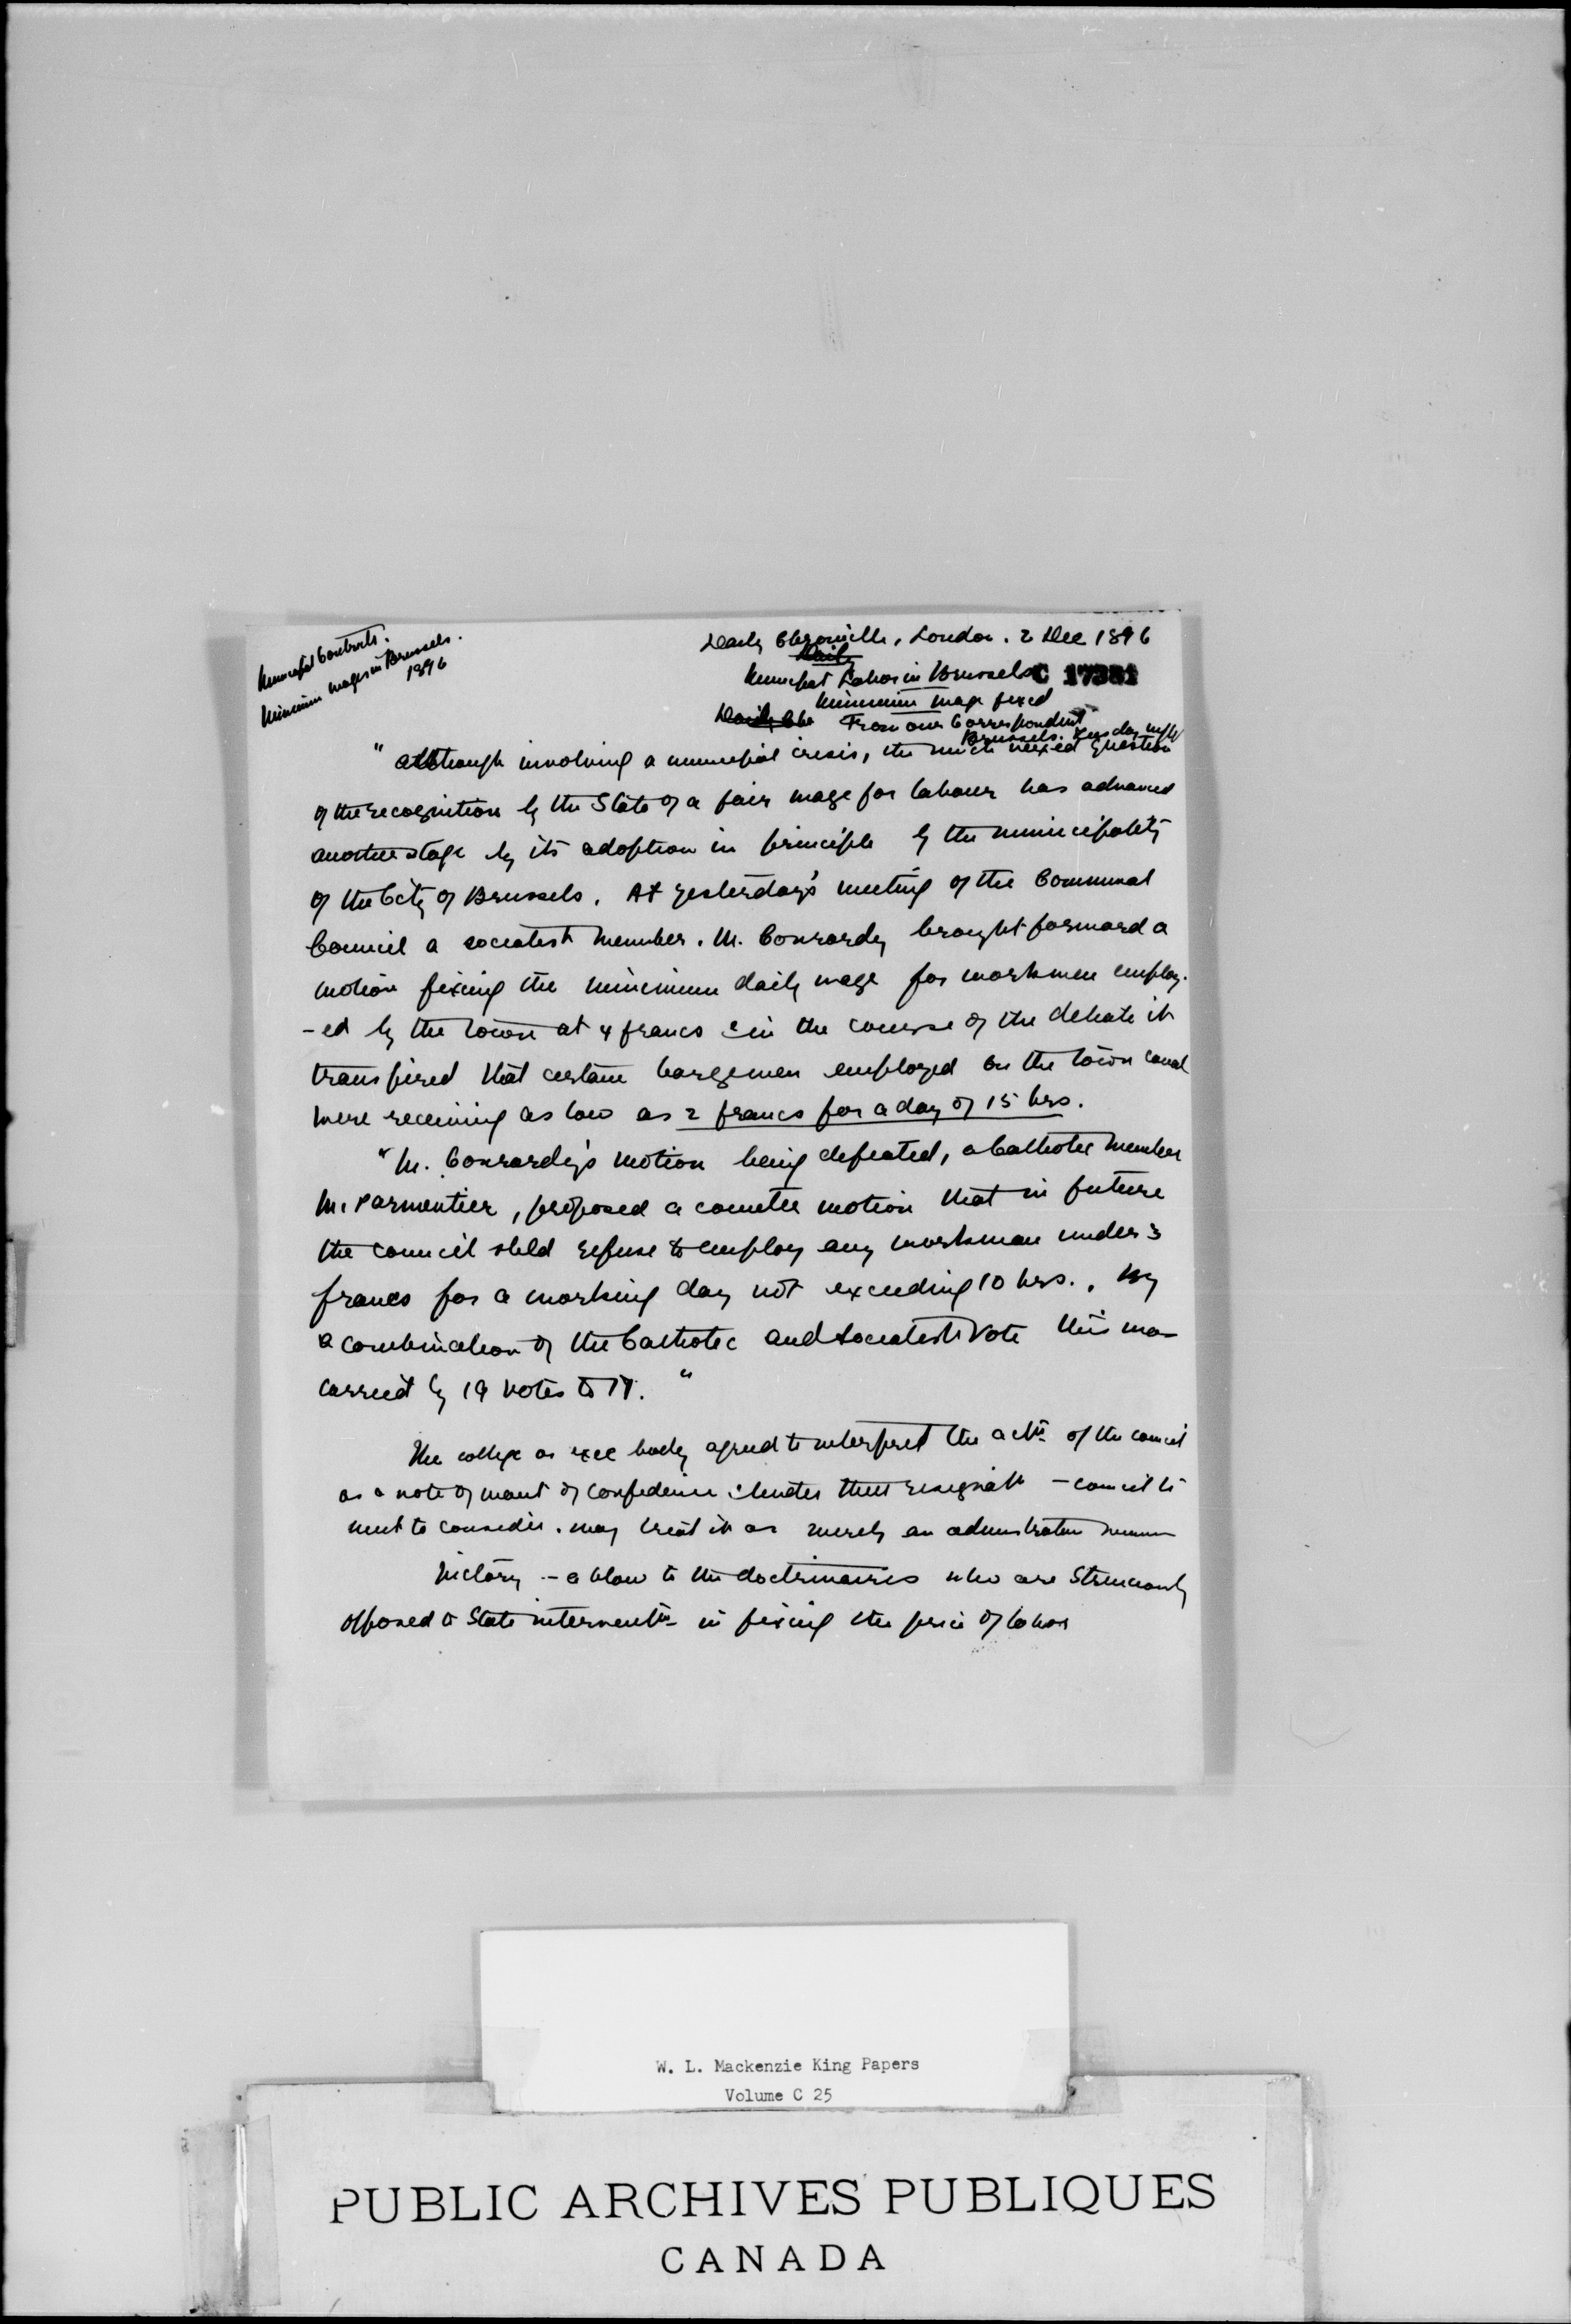 Municipal Contracts.
Minimum Wages in Brussels.
1896
Daily Chronicle, London. 2 Dec 1896
Daily
Municipal Labor in Brussels
C 17381
Minimum wage fixed
Daily Chr From our Correspondent
Brussels. Tuesday night
"Although involving a municipal crisis, the much vexed question
of the recognition by the State of a fair wage for labour has advanced
another stage by its adoption in principle by the municipality
of the City of Brussels. At yesterday's meeting of the Communal
Council a socialist member. M. Conrardy brought forward a
motion fixing the minimum daily wage for workmen employ-
-ed by the town at 4 francs & in the course of the debate it
transpired that certain bargemen employed on the town canal
were receiving as low as 2 francs for a day of 15 hrs.
"M. Conrardy's motion being defeated, a Catholic member
M. Parmentier, proposed a counter motion that in future
the council shld refuse to employ any workman under 3
francs for a working day not exceeding 10 hrs., By
a combination of the Catholic and Socialist vote this was
carried by 19 votes to 17."
The college or exec body agreed to interpret the actn of the council
as a vote of want of confidence & tender their resignatn - council to
meet to consider. may treat it as merely an administrative
Victory - a blow to the doctrinaires who are strenuously
opposed to State interventn in fixing the price of labor
W. L. Mackenzie King Papers
Volume C 25
PUBLIC ARCHIVES PUBLIQUES
CANADA